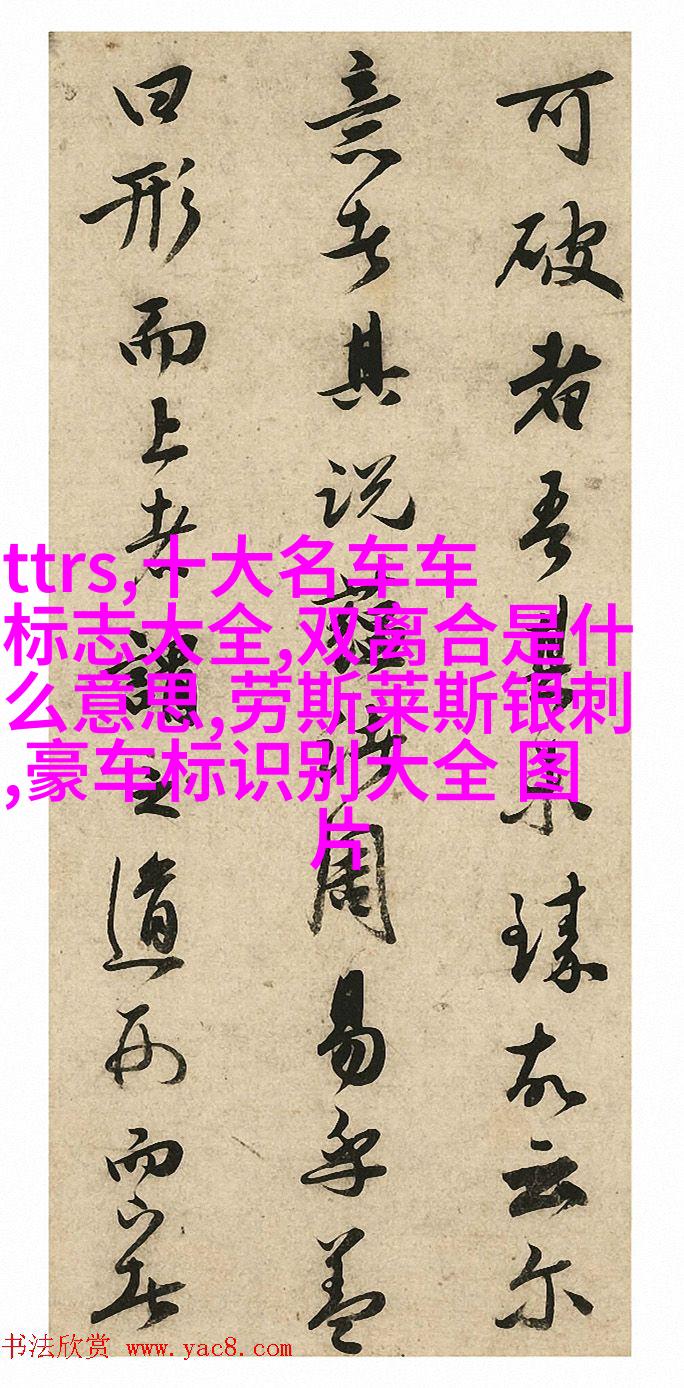 可破者吾書未臻故云尔
意者其说於周易乎盖
曰形而上者謂之道形而下者
ttrs,十大名车车
标志大全,双离合是什
么意思,劳斯莱斯银刺
,豪车标识别大全 图
片
书法欣赏 www.yac8.com